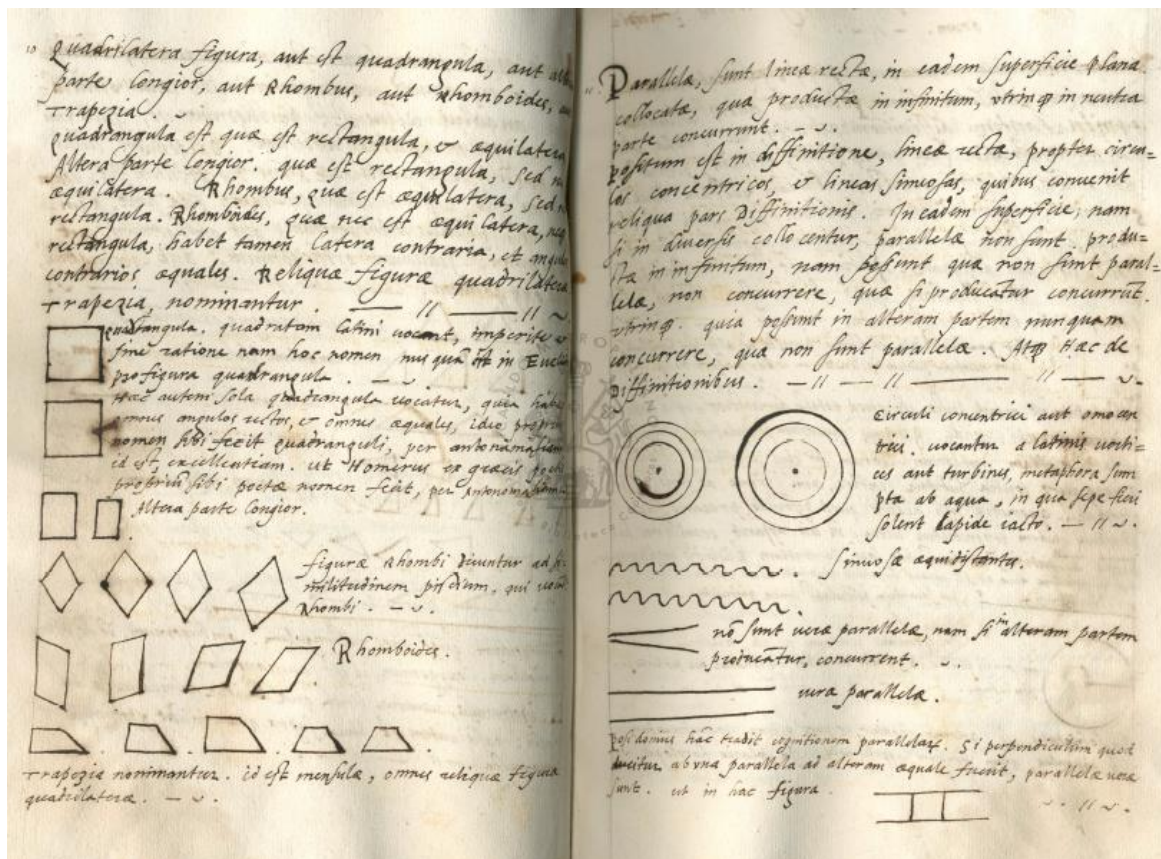 10 Quadrilatera figura, aut est quadrangula, aut alt
parte longior, aut Rhombus, aut Rhomboides, au
Trapezia.
quadrangula est quæ est rectangula, & æquilatera
Altera parte longior. quæ est rectangula, sed n
æquilatera. Rhombus, quæ est æquilatera, sed n
rectangula. Rhomboides, quæ nec est æquilatera, neq
rectangula, habet tamen latera contraria, et angul
contrarios æquales. Reliquæ figuræ quadrilateræ
Trapezia, nominantur.
quadrangula. quadratam latini vocant, imperite &
sine ratione nam hoc nomen nusquã est in Eucli
pro figura quadrangula.
Hæc autem sola quadrangula vocatur, quia habet
omnes angulos rectos, & omnes æquales, ideo proprium
nomen sibi fecit quadranguli, per antonomasiam
id est, excellentiam. ut Homerus ex græcis poetis
proprium sibi poetæ nomen fecit, per Antonomasiam
Altera parte longior.
figuræ Rhombi dicuntur ad si
militudinem piscium, qui vocant
Rhombi.
Rhomboides.
Trapezia nominantur. id est mensulæ, omnes reliquæ figuræ
quadrilateræ.
Parallelæ, sunt lineæ rectæ, in eadem superficie plana
collocatæ, quæ productæ in infinitum, utrinq in neutra
parte concurrunt.
positum est in diffinitione, lineæ rectæ, propter circu=
los concentricos, & lineas sinuosas, quibus convenit
reliqua pars Diffinitionis. In eadem superficie, nam
si in diversis collocentur, parallelæ non sunt. produ=
ctæ in infinitum, nam possunt quæ non sunt paral=
lelæ, non concurrere, quæ si producãtur concurrũt.
utrinq. quia possunt in alteram partem nunquam
concurrere, quæ non sunt parallelæ. Atq Hæc de
Diffinitionibus.
Circuli concentrici aut omocen
trici. vocantur a latinis vorti=
ces aut turbines, metaphora sum
pta ab aqua, in qua sepe fieri
solent lapide iacto.
Sinuosæ æquidistantes.
nõ sunt veræ parallelæ, nam si in alteram partem
producãtur, concurrent.
veræ parallelæ.
Posidonius hãc tradit cognitionem parallelarũ. Si perpendiculum quod
ducitur ab una parallela ad alteram æquale fuerit, parallelæ veræ
sunt. ut in hac figura.